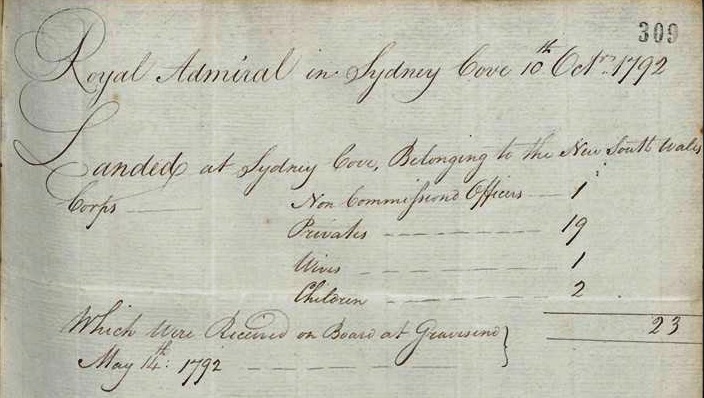 309
Royal Admiral in Sydney Cove 10th Octr. 1792
Landed at Sydney Cove, Belonging to the New South Wales
Corps — Non Commissiond Officers — 1
Privates — — — — — — 19
Wives — — — — — — 1
Children — — — — — — 2
23
Which were Received on Board at Gravesend
May 14th: 1792 — — — — — —